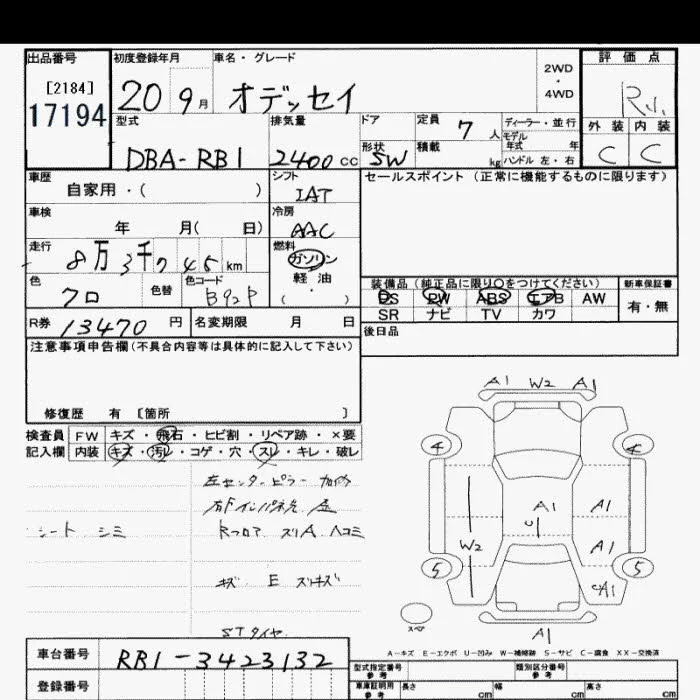 出品番号 初度登録年月 車名・グレード 評価点
[2184] 2WD・4WD
17194 20 9月 オデッセイ R
型式 排気量 ドア 定員 7人 ディーラー・並行 外装 内装
モデル年式 年
DBA-RB1 2400cc 形状 SW 積載 kg ハンドル 左・右 C C
車歴 自家用・( ) シフト IAT セールスポイント(正常に機能するものに限ります)
車検 年 月( 日) 冷房 AAC
走行 8万3千745km 燃料 ガソリン 軽油 ( ・ )
色 クロ 色替 色コード B92P
装備品(純正品に限り〇をつけてください) 新車保証書
PS PW ABS エアB AW 有・無
SR ナビ TV カワ
R券 13470円 名変期限 月 日 後日品
注意事項申告欄(不具合内容等は具体的に記入して下さい)
修復歴 有 〔箇所 〕
検査員 FW キズ・飛石・ヒビ割・リペア跡・×要
記入欄 内装 キズ・汚レ・コゲ・穴・スレ・キレ・破レ
左センターピラー
シート シミ
Rフロア スリA ヘコミ
キズ E
STタイヤ
A1 W2 A1
4
A1 A1
W2 A1
5 5
A1
スペア
A1
A-キズ E-エクボ U-凹み W-補修跡 S-サビ C-腐食 XX-交換済
車台番号 RB1-3423132 型式指定番号 参考 類別区分番号 参考
登録番号 車庫証明用 参考 長さ cm 幅 cm 高さ cm